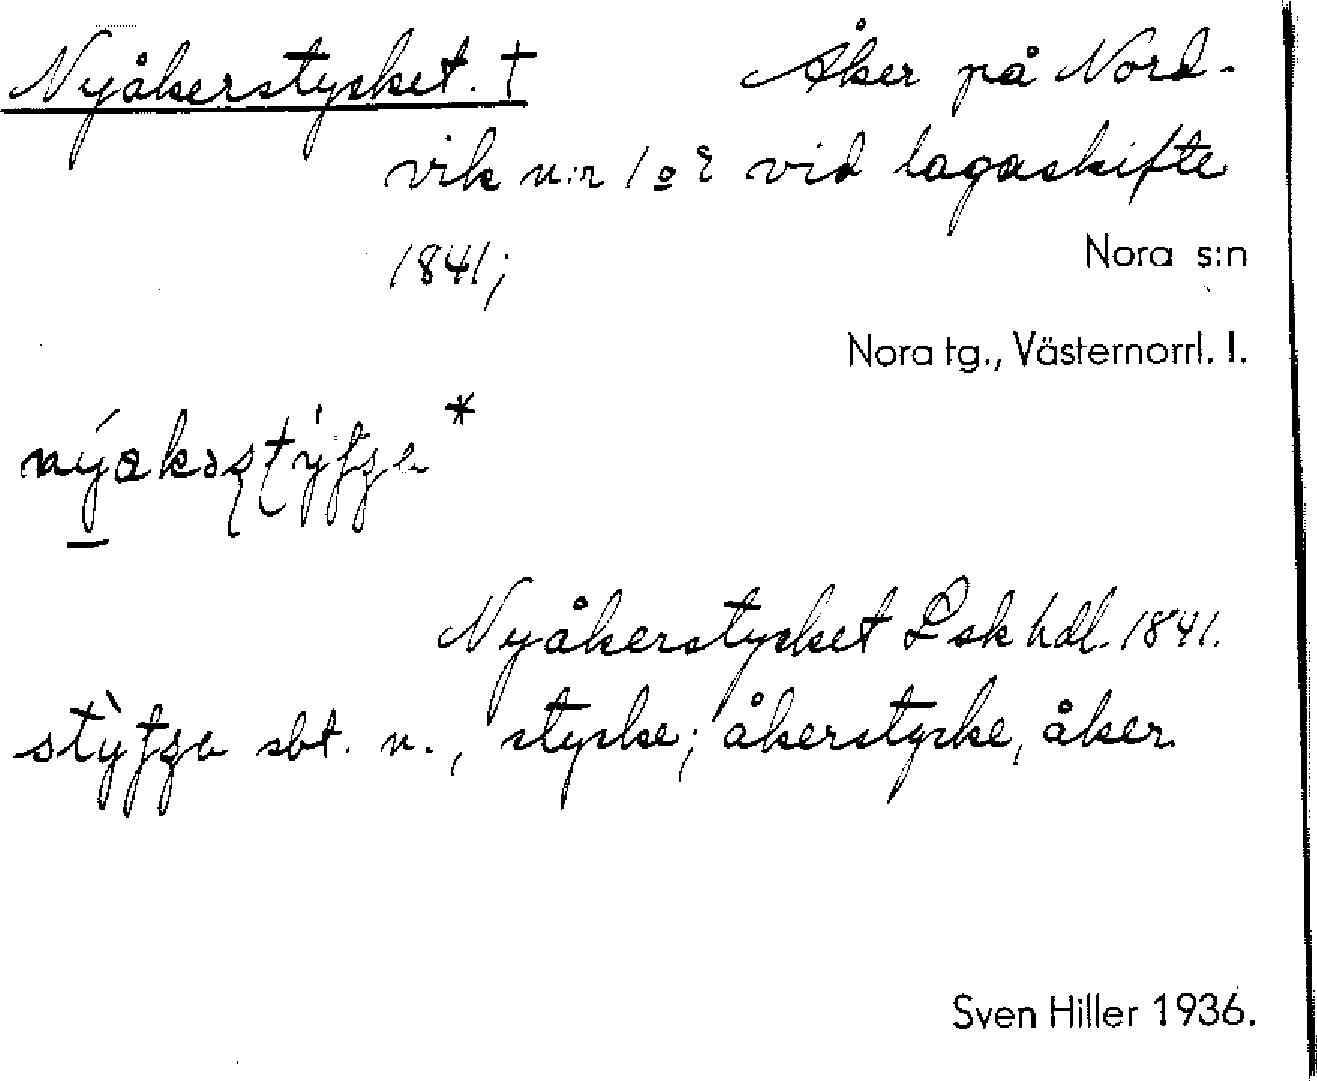 Nyåkerstycket. † Åker på Nord-
vik n:r 1 o 2 vid lagaskifte
1841;
Nora s:n
Nora tg., Västernorrl. l.
Nyåkerstycket Lsk hdl. 1841.
sbt. n., stycke; åkerstycke, åker.
Sven Hiller 1936.